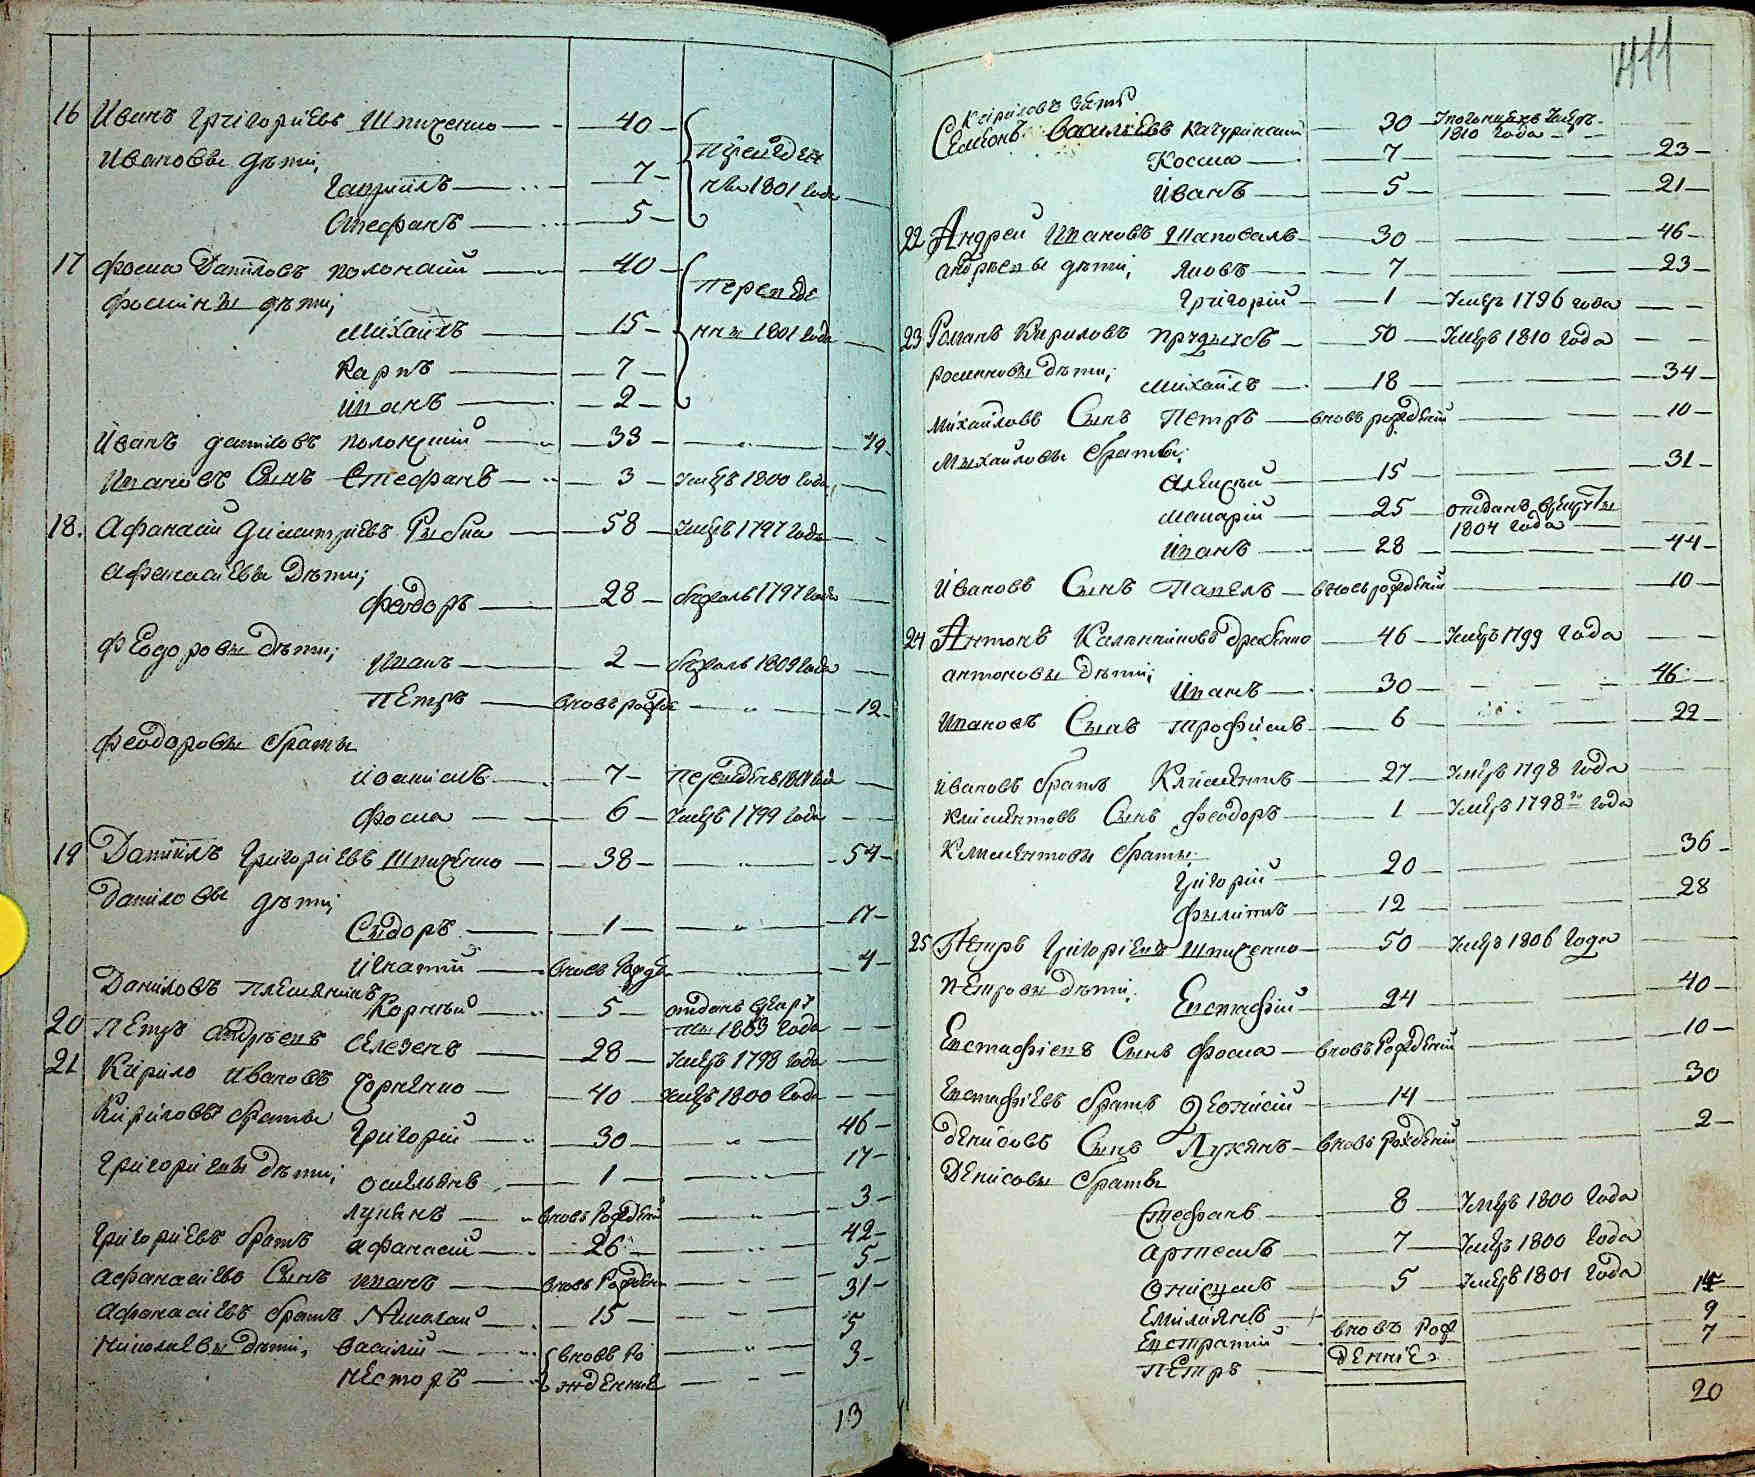 411
16 Иванъ Григориевъ Шпиченко 40 переведен
Ивановы дѣти, ны 1801 года
Гавриилъ 7
Стефанъ 5
17 Фома Даниловъ Полонский 40 переведе
Фомины дѣти; нны 1801 года
Михаилъ 15
Карпъ 7
Иванъ 2
Иванъ Даниловъ Полонский 33 49
Ивановъ Сынъ Стефанъ 3 Умеръ 1800 года
18. Афанасий Димитриевъ Рыбка 58 Умеръ 1797 года
Афанасиевы Дѣти;
Феодоръ 28 1797 года
Феодоровы дѣти;
Иванъ 2 1809 года
Петръ вновь рожде 12
Феодоровы браты
Иоакимъ 7 Переведенъ года
Фома 6 Умеръ 1799 года
19 Даниилъ Григориевъ Шпиченко 38 54
Даниловы дѣти;
Сидоръ 1 17
Игнатий вновь рожде 4
Даниловъ племянникъ
Корнѣй 5 отданъ врекру
ты 1803 года
20 Петръ Андрѣевъ Селезенъ 28 Умеръ 1798 года
21 Кирило Ивановъ 40 Умеръ 1800 года
Кириловы браты
Григорий 30 46
Григориевы дѣти; Омельянъ 1 17
Лукянъ вновь рожденый 3
Григориевъ братъ Афанасий 26 42
Афанасиевъ Сынъ Иванъ вновь рожден 5
Афанасиевъ братъ Николай 15 31
Николаевы дѣти, Василий вновь ро 5
Несторъ жденные 3
13
Кириловъ зять
Семіонъ Василіевъ 30 1810 года
Косма 7 23
Иванъ 5 21
22 Андрей Ивановъ Шаповалъ 30 46
Андрѣевы дѣти, Яковъ 7 23
Григорий 1 Умеръ 1796 года
23 Романъ Кириловъ 50 Умеръ 1810 года
Романовы дѣти; Михаилъ 18 34
Михаиловъ Сынъ Петръ вновь рожденый 10
Михаиловы браты;
Алексѣй 15 31
Макарий 25 отданъ врекруты
1804 года
Иванъ 28 44
Ивановъ Сынъ Павелъ вновь рожденый 10
24 Антонъ Калениковъ 46 Умеръ 1799 года
Антоновы дѣти; Иванъ 30 46
Ивановъ Сынъ Трофимъ 6 22
Ивановъ братъ Климентъ 27 Умеръ 1798 года
Климентовъ Сынъ Феодоръ 1 Умеръ 1798го года
Климентовы браты
Григорий 20 36
Филипъ 12 28
25 Петръ Григориевъ Шпиченко 50 Умеръ 1806 года
Петровы дѣти. Евстафий 24 40
Евстафиевъ Сынъ Фома вновь рожденый 10
Евстафиевъ братъ Денисий 14 30
Денисовъ Сынъ Лукянъ вновь рожденый 2
Денисовы браты
Стефанъ 8 Умеръ 1800 года
Артемъ 7 Умеръ 1800 года
Онисимъ 5 Умеръ 1801 года
Емилиянъ вновь рож
Евстратий денніе 9
Петръ 7
20